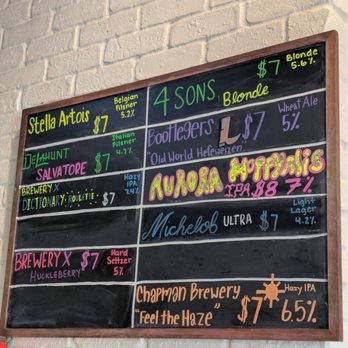 Stella Artois $7 Belgian Pilsner 5.2%
Delahunt Salvatore $7 Italian Pilsner 4.7%
Brewery X Dictionary: $7 Hazy IPA
Brewery X Huckleberry $7 Hard Seltzer 5%
4 Sons Blonde $7 Blonde 5.6%
Bootlegers $7 Wheat Ale 5%
"Old World Hefeweizen"
Aurora IPA $8 7%
Michelob Ultra $7 Light Lager 4.2%
Chapman Brewery $7 Hazy IPA
"Feel the Haze" 6.5%